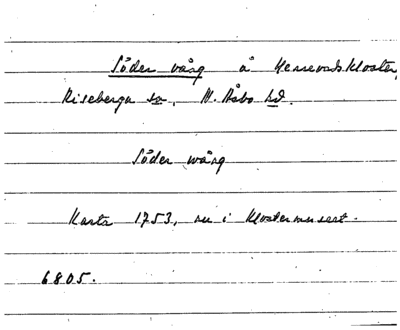 Söder vång å Herrevadskloster,
Riseberga sn, N. Åsbo hd.
Söder wång
Karta 1753, nu i Klostermuseet.
6805.